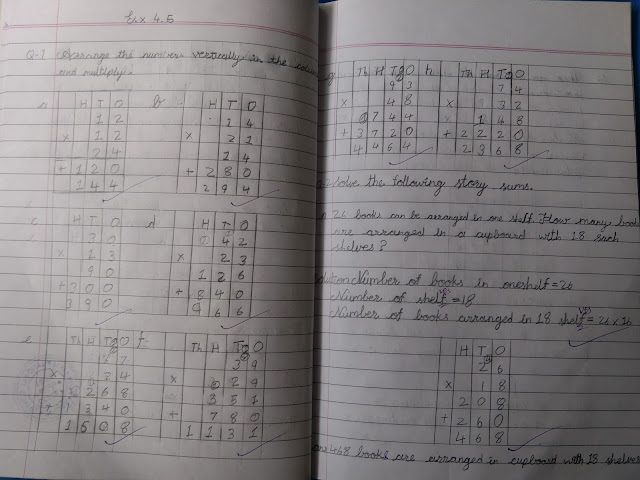 Ex 4.5
Q-1 Arrange the numbers vertically in the
and multiply.
a H T O b H T O
1 2 1 4
x 1 2 x 2 1
2 4 1 4
+ 1 2 0 + 2 8 0
1 4 4 2 9 4
c H T O d H T O
3 0 4 2
x 1 3 x 2 3
9 0 1 2 6
+ 3 0 0 + 8 4 0
3 9 0 9 6 6
e Th H T O f Th H T O
7 3 9
x 2 4 x 2 9
2 6 8 3 5 1
+ 1 3 4 0 + 7 8 0
1 6 0 8 1 1 3 1
g Th H T O h Th H T O
9 3 7 4
x 4 8 x 3 2
7 4 4 1 4 8
+ 3 7 2 0 + 2 2 2 0
4 4 6 4 2 3 6 8
Solve the following story sums.
26 books can be arranged in one shelf. How many
are arranged in a cupboard with 18 such
shelves?
Number of books in one shelf = 26
Number of shelves = 18
Number of books arranged in 18 shelves = 26 x
H T O
2 6
x 1 8
2 0 8
+ 2 6 0
4 6 8
468 books are arranged in cupboard with 18 shelves